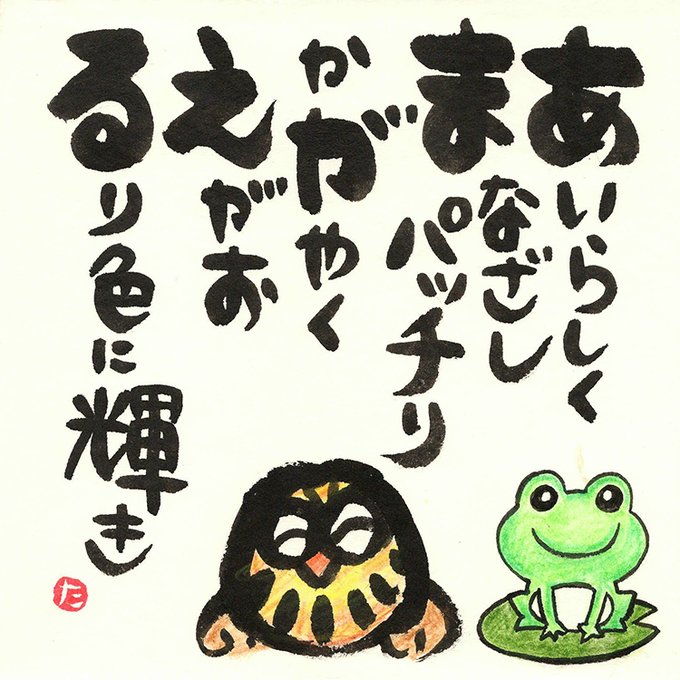 あいらしく
まなざし
パッチリ
かがやく
えがお
るり色に輝き
た